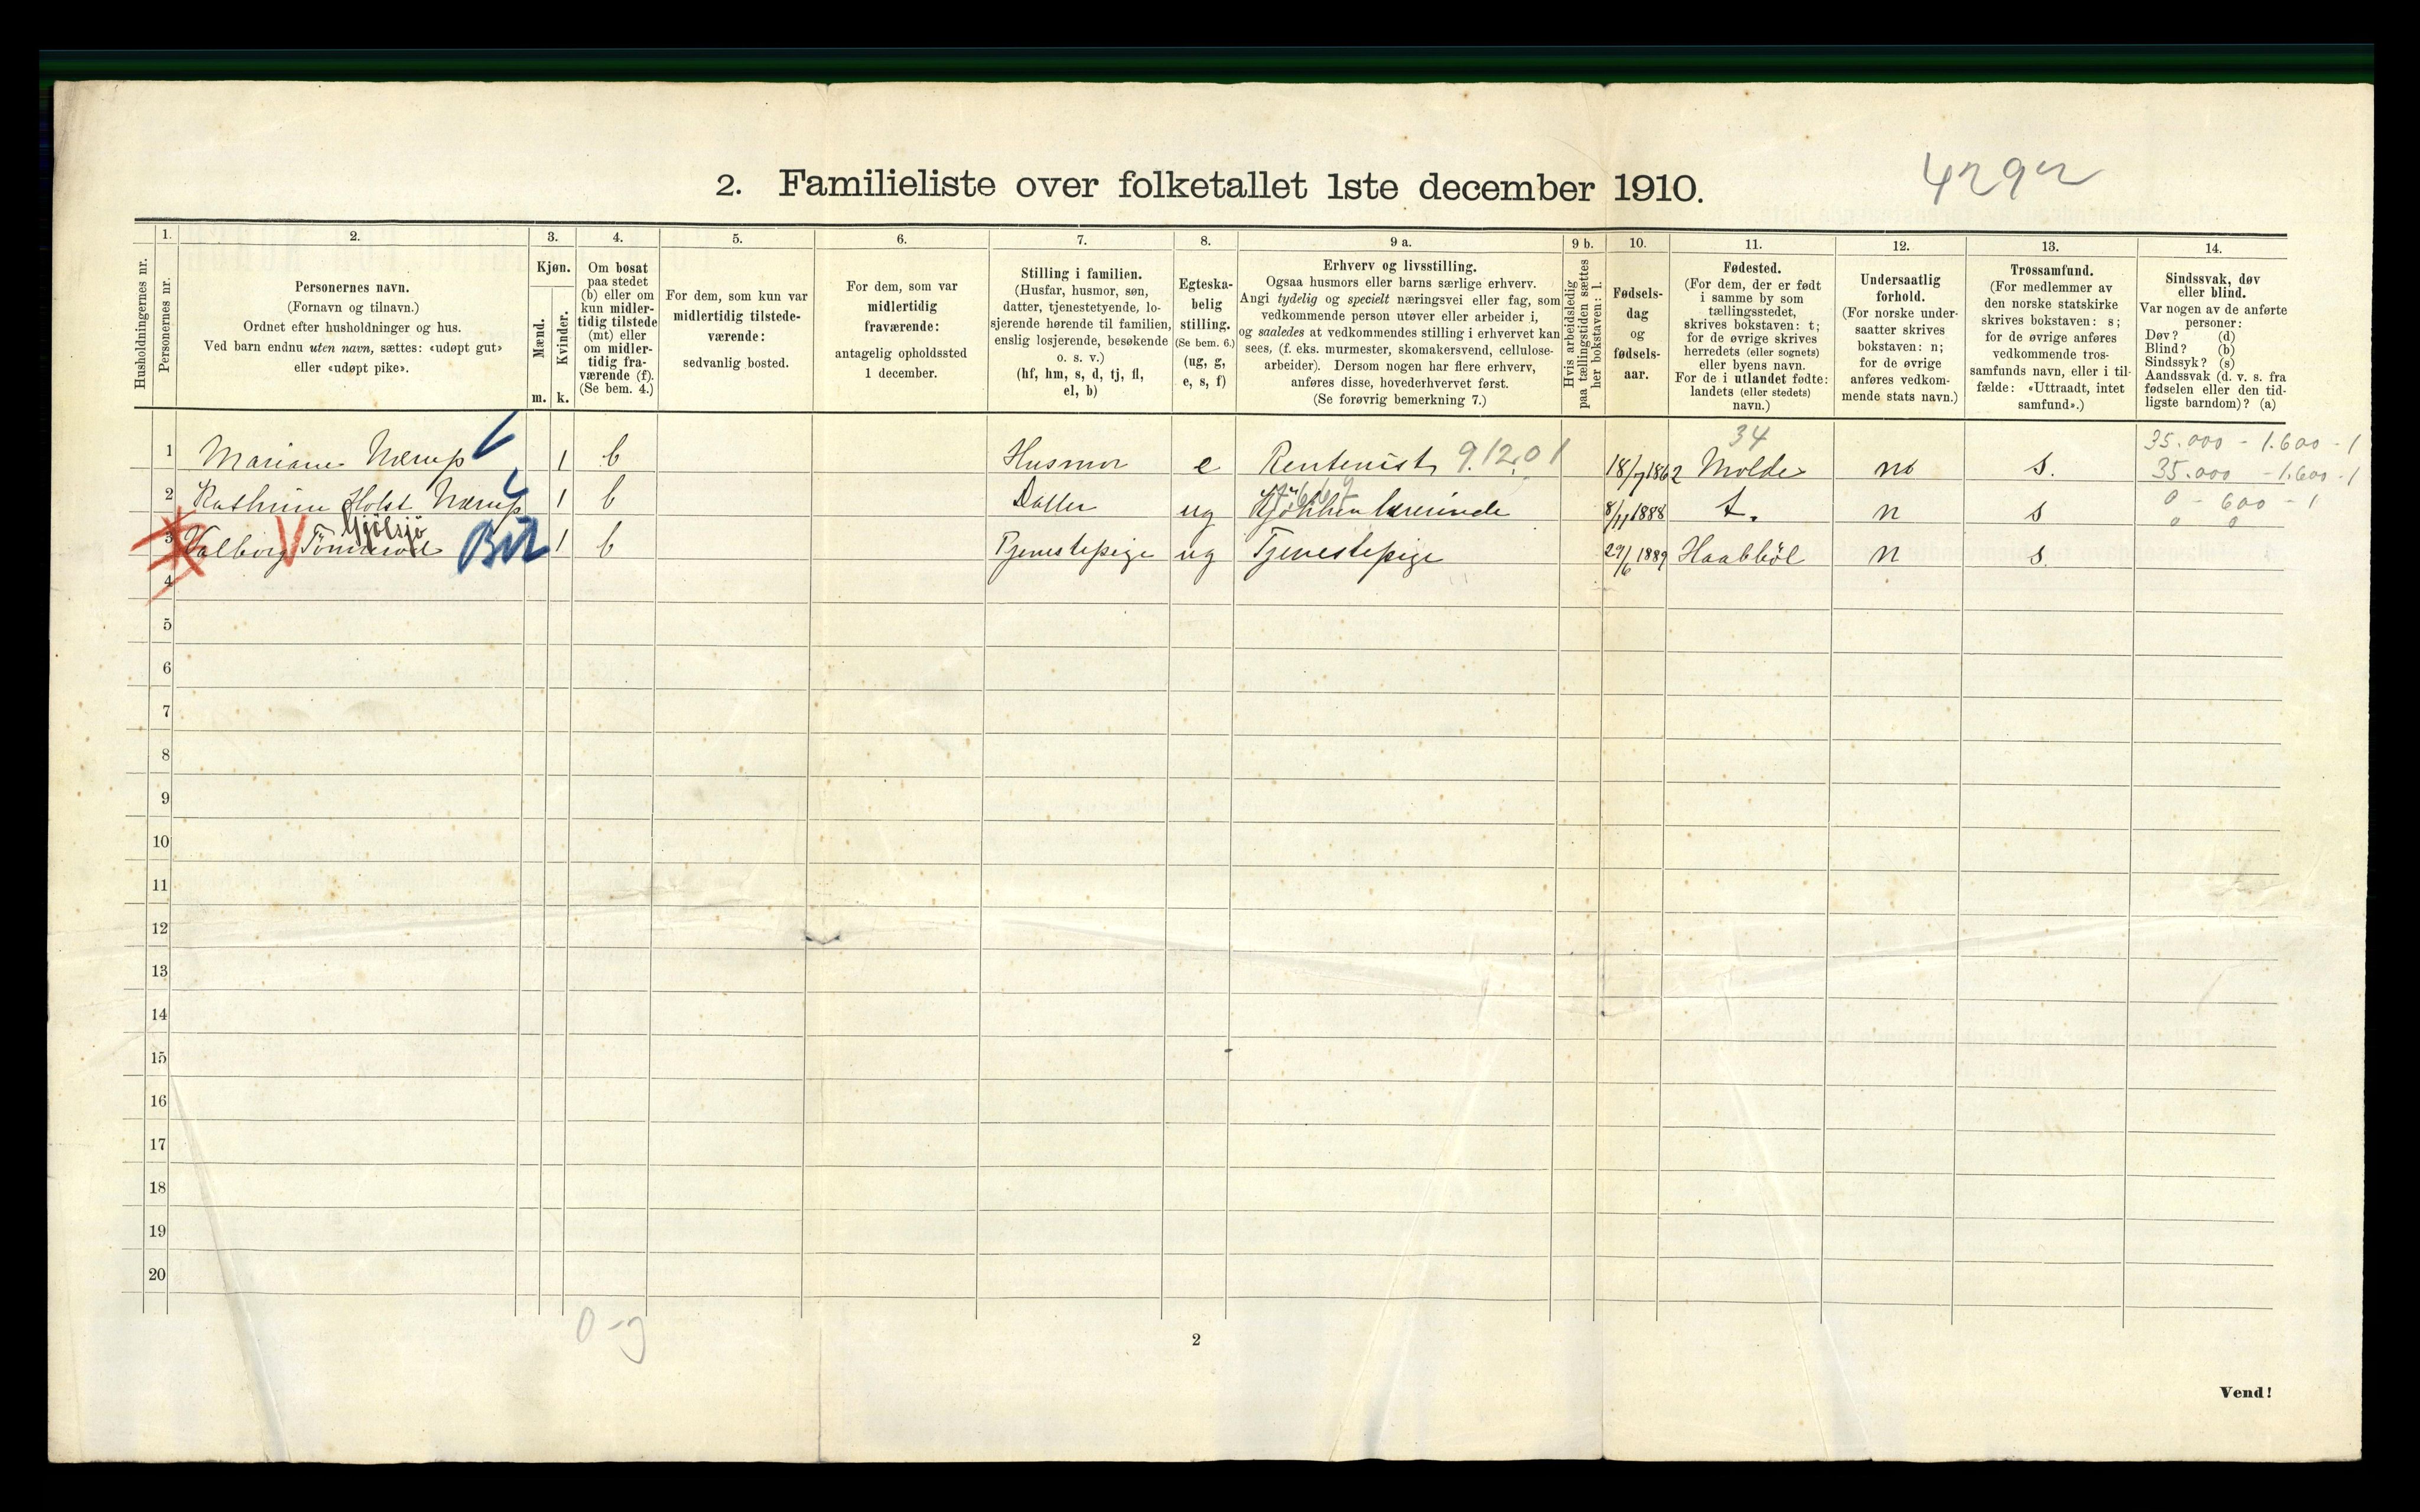 2. Familieliste over folketallet 1ste december 1910.
4292
Husholdningernes nr.
1.
Personernes nr.
2.
Personernes navn.
(Fornavn og tilnavn.)
Ordnet efter husholdninger og hus.
Ved barn endnu uten navn, sættes: «udøpt gut»
eller «udøpt pike».
3.
Kjøn.
Mænd.
Kvinder.
m.
k.
4.
Om bosat
paa stedet
(b) eller om
kun midler-
tidig tilstede
(mt) eller
om midler-
tidig fra-
værende (f).
(Se bem. 4.)
5.
For dem, som kun var
midlertidig tilstede-
værende:
sedvanlig bosted.
6.
For dem, som var
midlertidig
fraværende:
antagelig opholdssted
1 december.
7.
Stilling i familien.
(Husfar, husmor, søn,
datter, tjenestetyende, lo-
sjerende hørende til familien,
enslig losjerende, besøkende
o. s. v.)
(hf, hm, s, d, tj, fl,
el, b)
8.
Egteska-
belig
stilling.
(Se bem. 6.)
(ug, g,
e, s, f)
9 a.
Erhverv og livsstilling.
Ogsaa husmors eller barns særlige erhverv.
Angi tydelig og specielt næringsvei eller fag, som
vedkommende person utøver eller arbeider i,
og saaledes at vedkommendes stilling i erhvervet kan
sees, (f. eks. murmester, skomakersvend, cellulose-
arbeider). Dersom nogen har flere erhverv,
anføres disse, hovederhvervet først.
(Se forøvrig bemerkning 7.)
9 b.
Hvis arbeidsledig
paa tællingstiden sættes
her bokstaven: l.
10.
Fødsels-
dag
og
fødsels-
aar.
11.
Fødested.
(For dem, der er født
i samme by som
tællingsstedet,
skrives bokstaven: t;
for de øvrige skrives
herredets (eller sognets)
eller byens navn.
For de i utlandet fødte:
landets (eller stedets)
navn.)
12.
Undersaatlig
forhold.
(For norske under-
saatter skrives
bokstaven: n;
for de øvrige
anføres vedkom-
mende stats navn.)
13.
Trossamfund.
(For medlemmer av
den norske statskirke
skrives bokstaven: s;
for de øvrige anføres
vedkommende tros-
samfunds navn, eller i til-
fælde: «Uttraadt, intet
samfund».)
14.
Sindssvak, døv
eller blind.
Var nogen av de anførte
personer:
Døv? (d)
Blind? (b)
Sindssyk? (s)
Aandssvak (d. v. s. fra
fødselen eller den tid-
ligste barndom)? (a)
34
35.000 - 1.600 - 1
1 Mariane Nærup 1 b Husmor e Rentenist 9.12.01 18/7 1862 Molde n s. 35.000 - 1.600 - 1
2 Kathrine Holst Nærup 1 b Datter ug Kjøkkenlærerinde 8/11 1888 t. n s 0 - 600 - 1
0 0
Gjölsjö
3 Valborg 1 b Tjenestepige ug Tjenestepige 29/6 1889 Haabböl n s.
4
5
6
7
8
9
10
11
12
13
14
15
16
17
18
19
20
0-g
2
Vend!